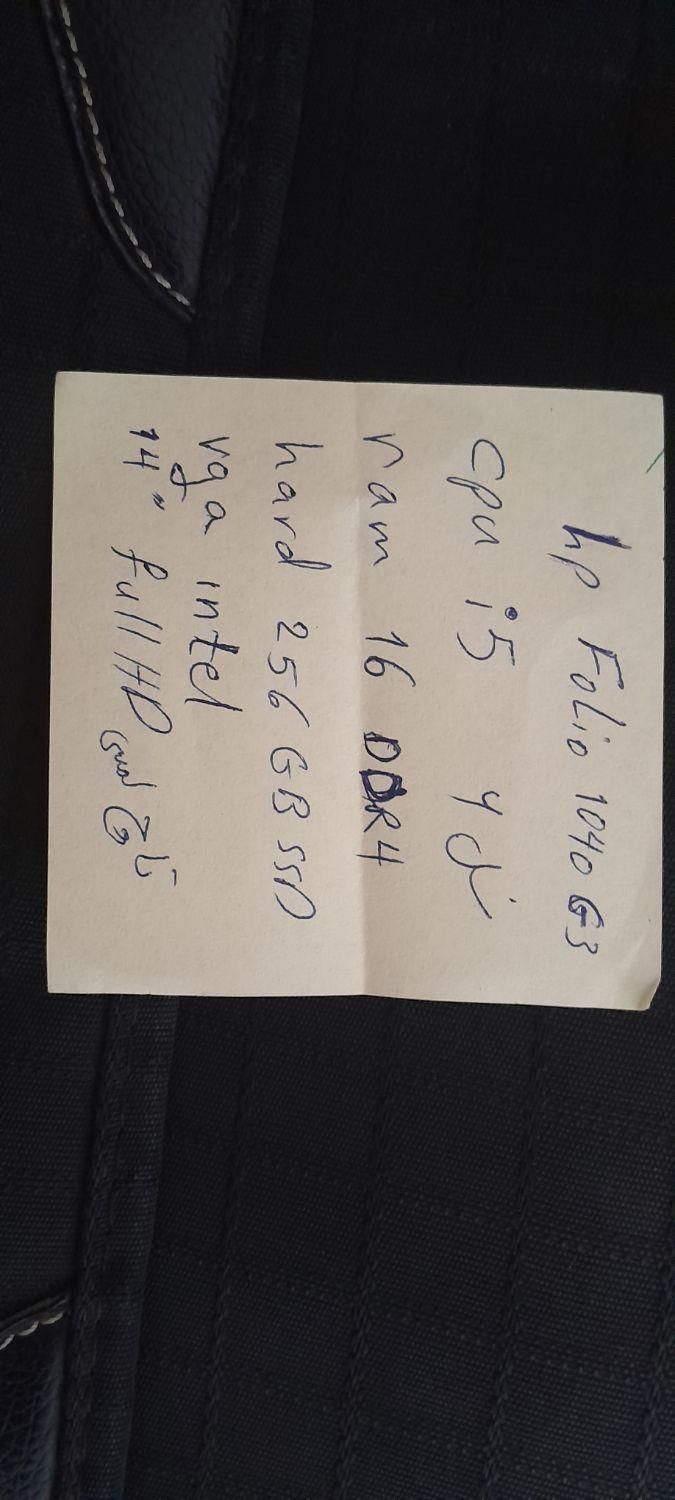 hp Folio 1040 G3
cpu i5 4
ram 16 DDR4
hard 256 GB SSD
vga intel
14" full HD لمسی